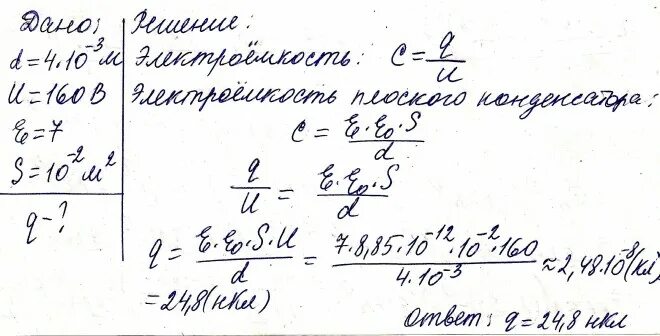 Дано:
d=4·10⁻³м
U=160В
ε=7
S=10⁻²м²
q-?
Решение:
Электроёмкость: C=q/U
Электроёмкость плоского конденсатора:
C=ε·ε₀·S/d
q/U=ε·ε₀·S/d
q=ε·ε₀·S·U/d=7·8,85·10⁻¹²·10⁻²·160/4·10⁻³≈2,48·10⁻⁸(Кл)
=24,8(нКл)
Ответ: q=24,8 нКл